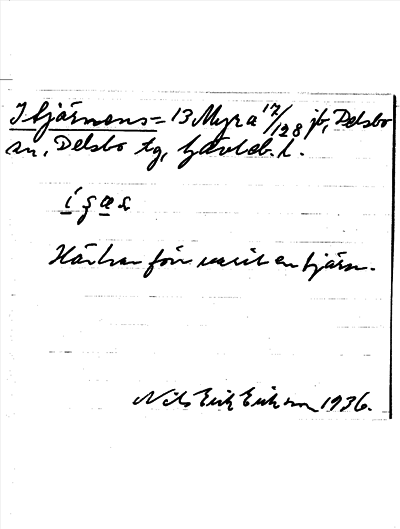 Itjärnens= 13 Myr a 17/128 jb, Delsbo
sn, Delsbo tg, Gävleb. l.
Här har förr varit en tjärn.
Nils Erik Erikson 1936.